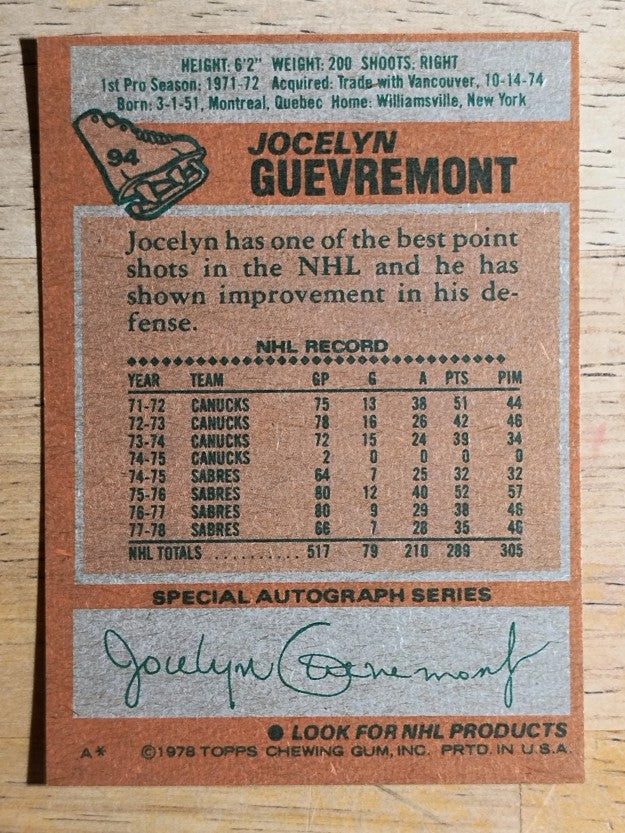 HEIGHT: 6'2" WEIGHT: 200 SHOOTS: RIGHT
1st Pro Season: 1971-72 Acquired: Trade with Vancouver, 10-14-74
Born: 3-1-51, Montreal, Quebec Home: Williamsville, New York
94
JOCELYN
GUEVREMONT
Jocelyn has one of the best point
shots in the NHL and he has
shown improvement in his de-
fense.
NHL RECORD
YEAR TEAM GP G A PTS PIM
71-72 CANUCKS 75 13 38 51 44
72-73 CANUCKS 78 16 26 42 46
73-74 CANUCKS 72 15 24 39 34
74-75 CANUCKS 2 0 0 0 0
74-75 SABRES 64 7 25 32 32
75-76 SABRES 80 12 40 52 57
76-77 SABRES 80 9 29 38 46
77-78 SABRES 66 7 28 35 46
NHL TOTALS .......... 517 79 210 289 305
SPECIAL AUTOGRAPH SERIES
Jocelyn Guevremont
● LOOK FOR NHL PRODUCTS
A* ©1978 TOPPS CHEWING GUM, INC. PRTD. IN U.S.A.